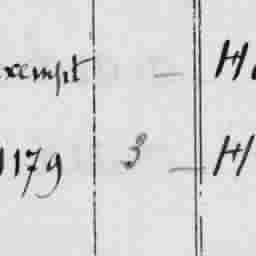 exempt — H
1179 3 — H